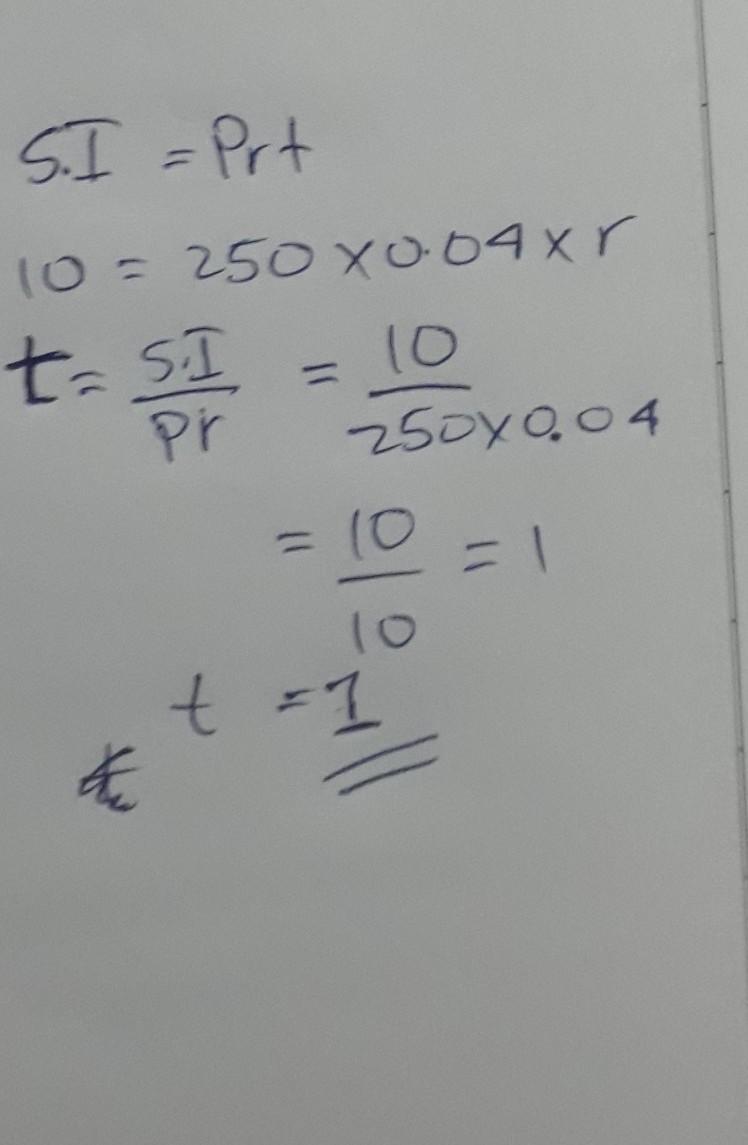 S.I = Prt
10 = 250 × 0.04 × r
t = S.I / Pr = 10 / 250 × 0.04
= 10 / 10 = 1
t = 1